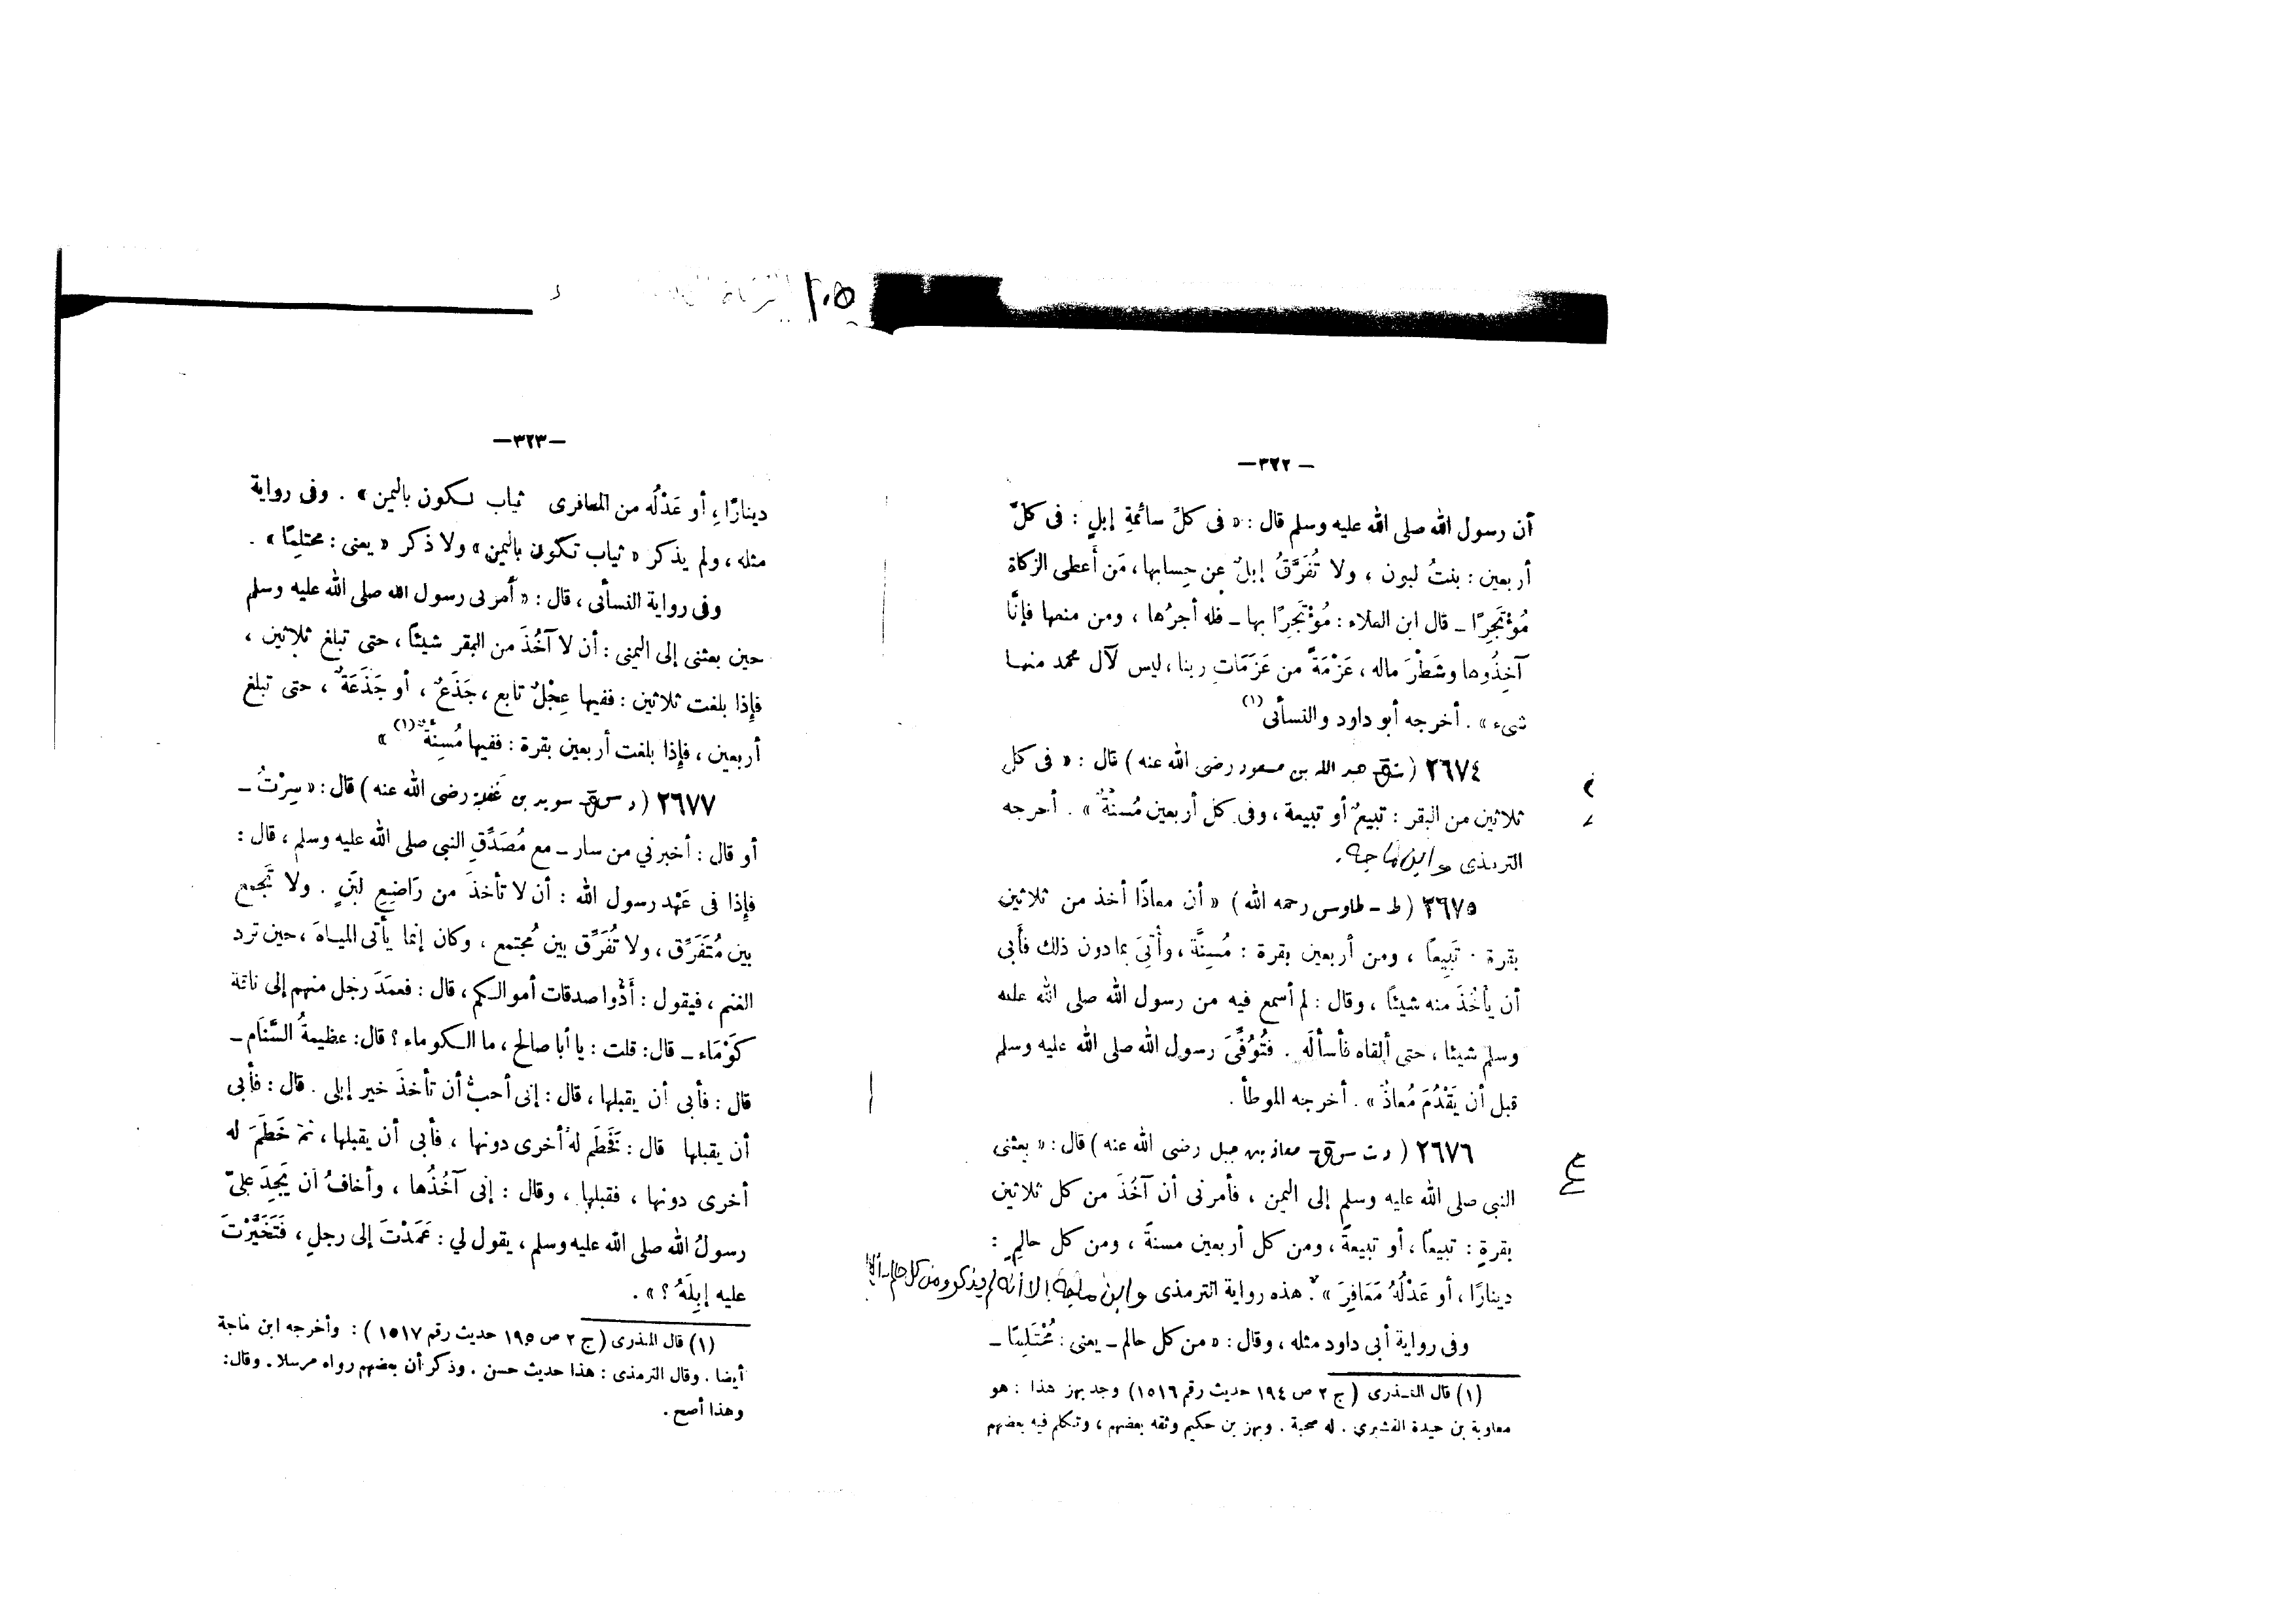 ٢٠٥
— ٣٢٢ —
أن رسول الله صلى الله عليه وسلم قال : « فى كلِّ سائمةِ إبلٍ : فى كلّ
أربعين : بنتُ لبون ، ولا تُفَرَّقُ إبلٌ عن حِسابها ، مَن أَعطى الزكاة
مُؤْتَجِرًا ـ قال ابن العلاء : مُؤْتَجِرًا بها ـ فله أجرُها ، ومن منعها فإنَّا
آخِذُوها وشَطْرَ ماله ، عَزْمَةً من عَزَمَاتِ ربنا ، ليس لآل محمد منها
شىء » . أخرجه أبو داود والنسأنى (١)
٢٦٧٤ ( ت ق ـ عبد الله بن مسعود رضى الله عنه ) قال : « فى كل
ثلاثين من البقر : تبيعٌ أو تبيعة ، وفى كل أربعين مُسنةٌ » . أخرجه
الترمذى وابن ماجه .
٢٦٧٥ ( ط ـ طاوس رحمه الله ) « أن معاذًا أخذ من ثلاثين
بقرة . تَبِيعًا ، ومن أربعين بقرة : مُسِنَّة ، وأُتِىَ بما دون ذلك فأَبى
أن يأخُذَ منه شيئًا ، وقال : لم أسمع فيه من رسول الله صلى الله عليه
وسلم شيئا ، حتى ألقاه فأسألَه . فتُوُفِّىَ رسول الله صلى الله عليه وسلم
قبل أن يَقْدُمَ مُعاذٌ » . أخرجه الموطأ .
٢٦٧٦ ( د ت س ق ـ معاذ بن جبل رضى الله عنه ) قال : « بعثنى
النبى صلى الله عليه وسلم إلى اليمن ، فأمرنى أن آخُذَ من كل ثلاثين
بقرةٍ : تبيعًا ، أو تبيعةً ، ومن كل أربعين مسنةً ، ومن كل حالِمٍ :
دينارًا ، أو عَدْلُهُ مَعَافِرَ » . هذه رواية الترمذى وابن ماجة إلا أنه لم يذكر ومن كل حالم
وفى رواية أبى داود مثله ، وقال : « من كل حالم ـ يعنى : مُحْتَلِمًا ـ
(١) قال المنذرى ( ج ٢ ص ١٩٤ حديث رقم ١٥١٦ ) وجد بهز هذا : هو
معاوية بن حيدة القشيرى . له صحبة . وبهز بن حكيم وثقه بعضهم ، وتكلم فيه بعضهم
— ٣٢٣ —
دينارًا ، أو عَدْلُه من المعافرى ثياب تكون باليمن » . وفى رواية
مثله ، ولم يذكر « ثياب تكون باليمن » ولا ذكر « يعنى : محتلِمًا » .
وفى رواية النسأنى ، قال : « أمرنى رسول الله صلى الله عليه وسلم
حين بعثنى إلى اليمنى : أن لا آخُذَ من البقر شيئًا ، حتى تبلغ ثلاثين ،
فإذا بلغت ثلاثين : ففيها عِجْلٌ تابع ، جَذَعٌ ، أو جَذَعَةٌ ، حتى تبلغ
أربعين ، فإذا بلغت أربعين بقرة : ففيها مُسِنةٌ (١) »
٢٦٧٧ ( د س ق ـ سويد بن غفلة رضى الله عنه ) قال : « سِرْتُ ـ
أو قال : أخبرني من سار ـ مع مُصَدِّقِ النبى صلى الله عليه وسلم ، قال :
فإذا فى عَهْد رسول الله : أن لا تأخذَ من رَاضِعِ لبَنٍ . ولا تَجمع
بين مُتَفَرِّق ، ولا تُفَرِّق بين مُجتمع ، وكان إنما يأتى المياهَ ، حين ترد
الغنم ، فيقول : أدُّوا صدقات أموالكم ، قال : فعمَدَ رجل منهم إلى ناقة
كَوْمَاء ـ قال : قلت : يا أبا صالح ، ما الكوماء ؟ قال : عظيمةُ السَّنَام ـ
قال : فأبى أن يقبلها ، قال : إنى أحبُّ أن تأخذَ خير إبلى . قال : فأبى
أن يقبلها قال : فَخَطَم له أخرى دونها ، فأبى أن يقبلها ، ثم خَطَمَ له
أخرى دونها ، فقبلها ، وقال : إنى آخُذُها ، وأخافُ أن يَجِدَ علىّ
رسولُ الله صلى الله عليه وسلم ، يقول لي : عَمَدْتَ إلى رجلٍ ، فَتَخَيَّرْتَ
عليه إبِلَهُ ؟ » .
(١) قال المنذرى ( ج ٢ ص ١٩٥ حديث رقم ١٥١٧ ) : وأخرجه ابن ماجة
أيضا . وقال الترمذى : هذا حديث حسن . وذكر أن بعضهم رواه مرسلا . وقال :
وهذا أصح .